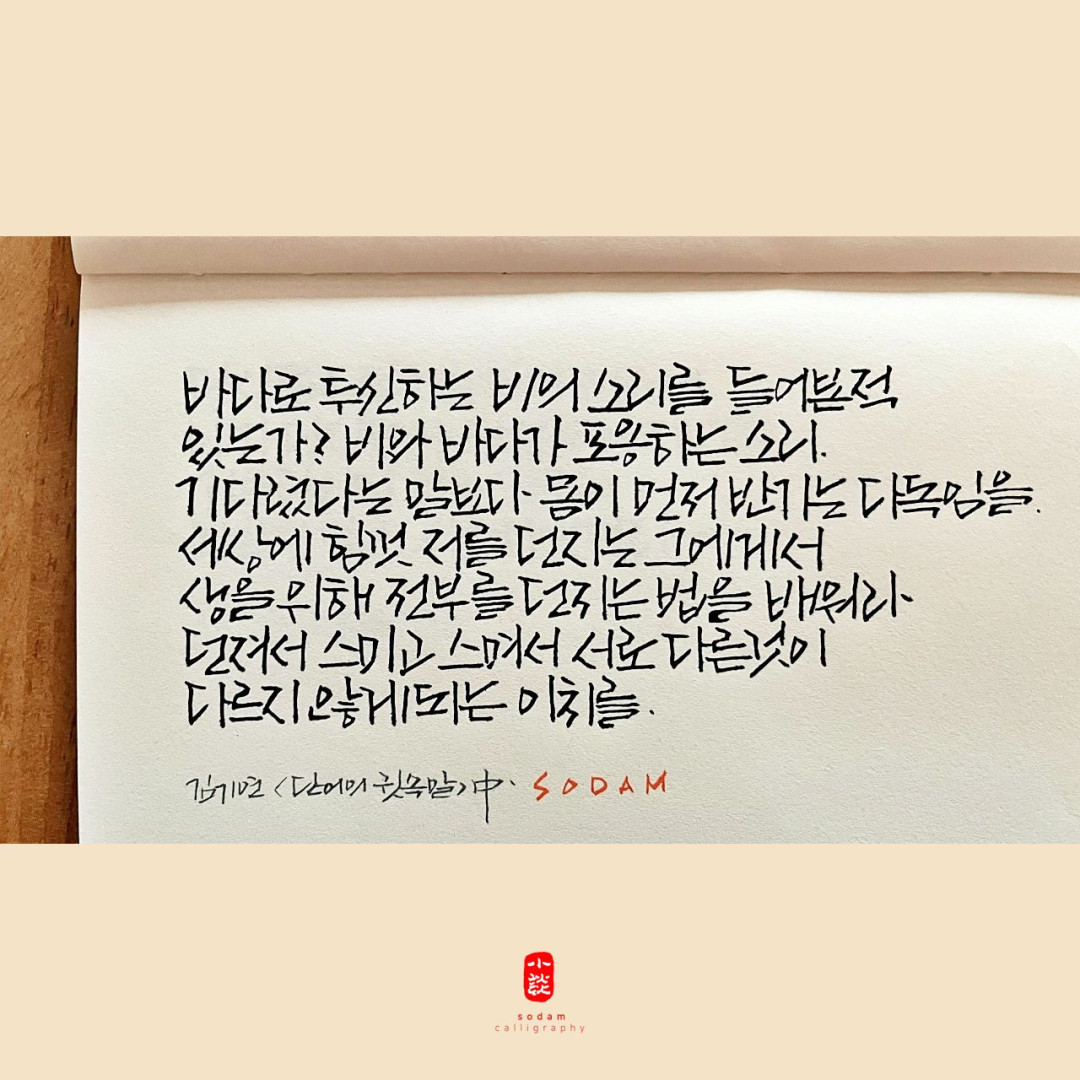 바다로 투신하는 비의 소리를 들어본적
있는가? 비와 바다가 포옹하는 소리.
기다렸다는 말보다 몸이 먼저 반기는 다독임을.
세상에 힘껏 저를 던지는 그에게서
생을 위해 전부를 던지는 법을 배워라.
던져서 스미고 스며서 서로 다른것이
다르지 않게되는 이치를.
김기연 <단어의 귓속말> 中. SODAM
小談
sodam
calligraphy